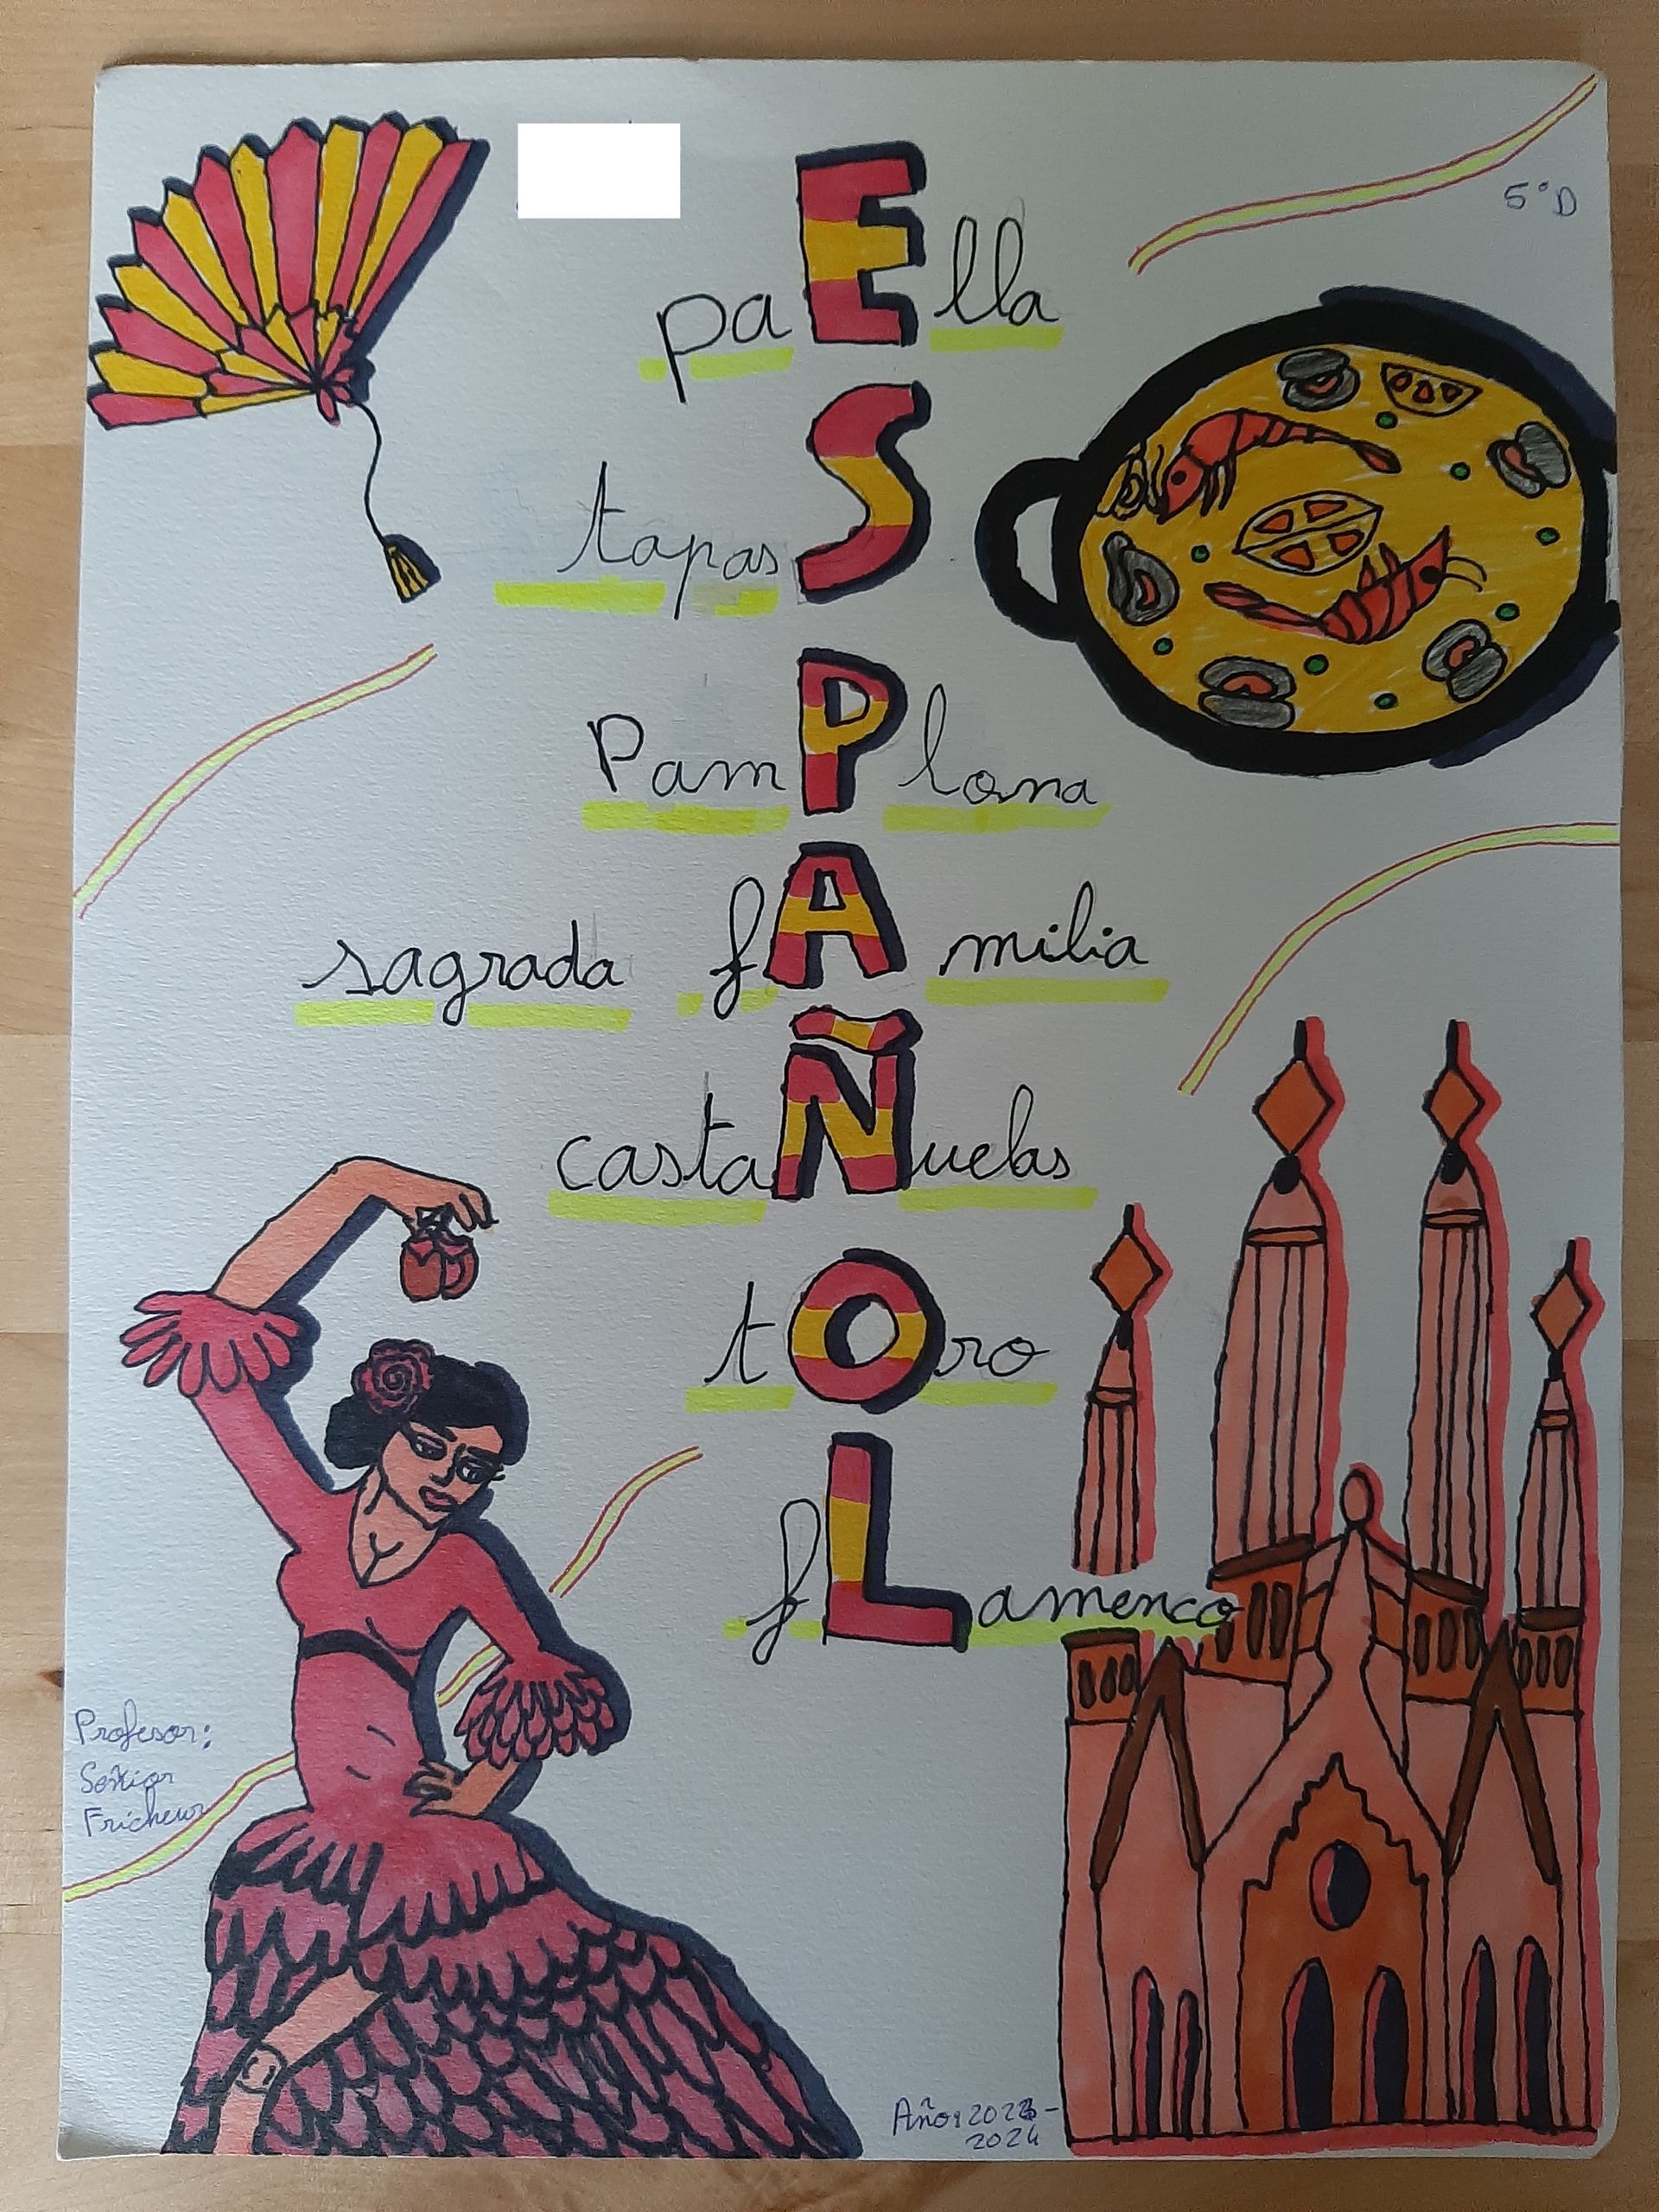 5°D
paElla
tapaS
PamPlona
sagrada fAmilia
castaÑuelas
tOro
fLamenco
Profesor:
Señior
Fricheur
Año: 2023-
2024